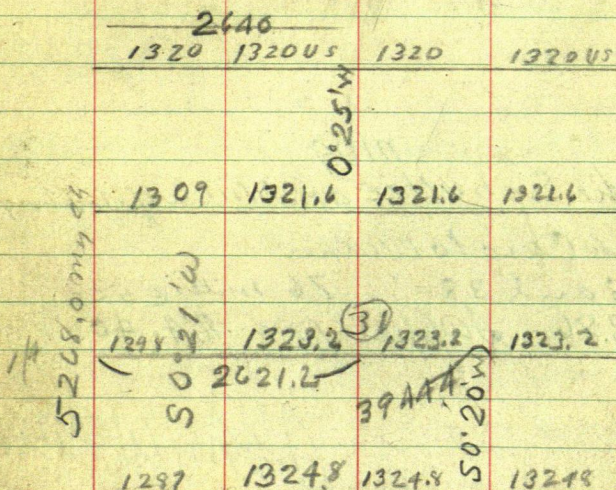 2640
1320 1320 US 1320 1320 US
0°25'W
1309 1321.6 1321.6 1321.6
S 0°21'W
31
1298 1323.2 1323.2 1323.2
2621.2
S0°20'W
1287 1324.8 1324.8 1324.8